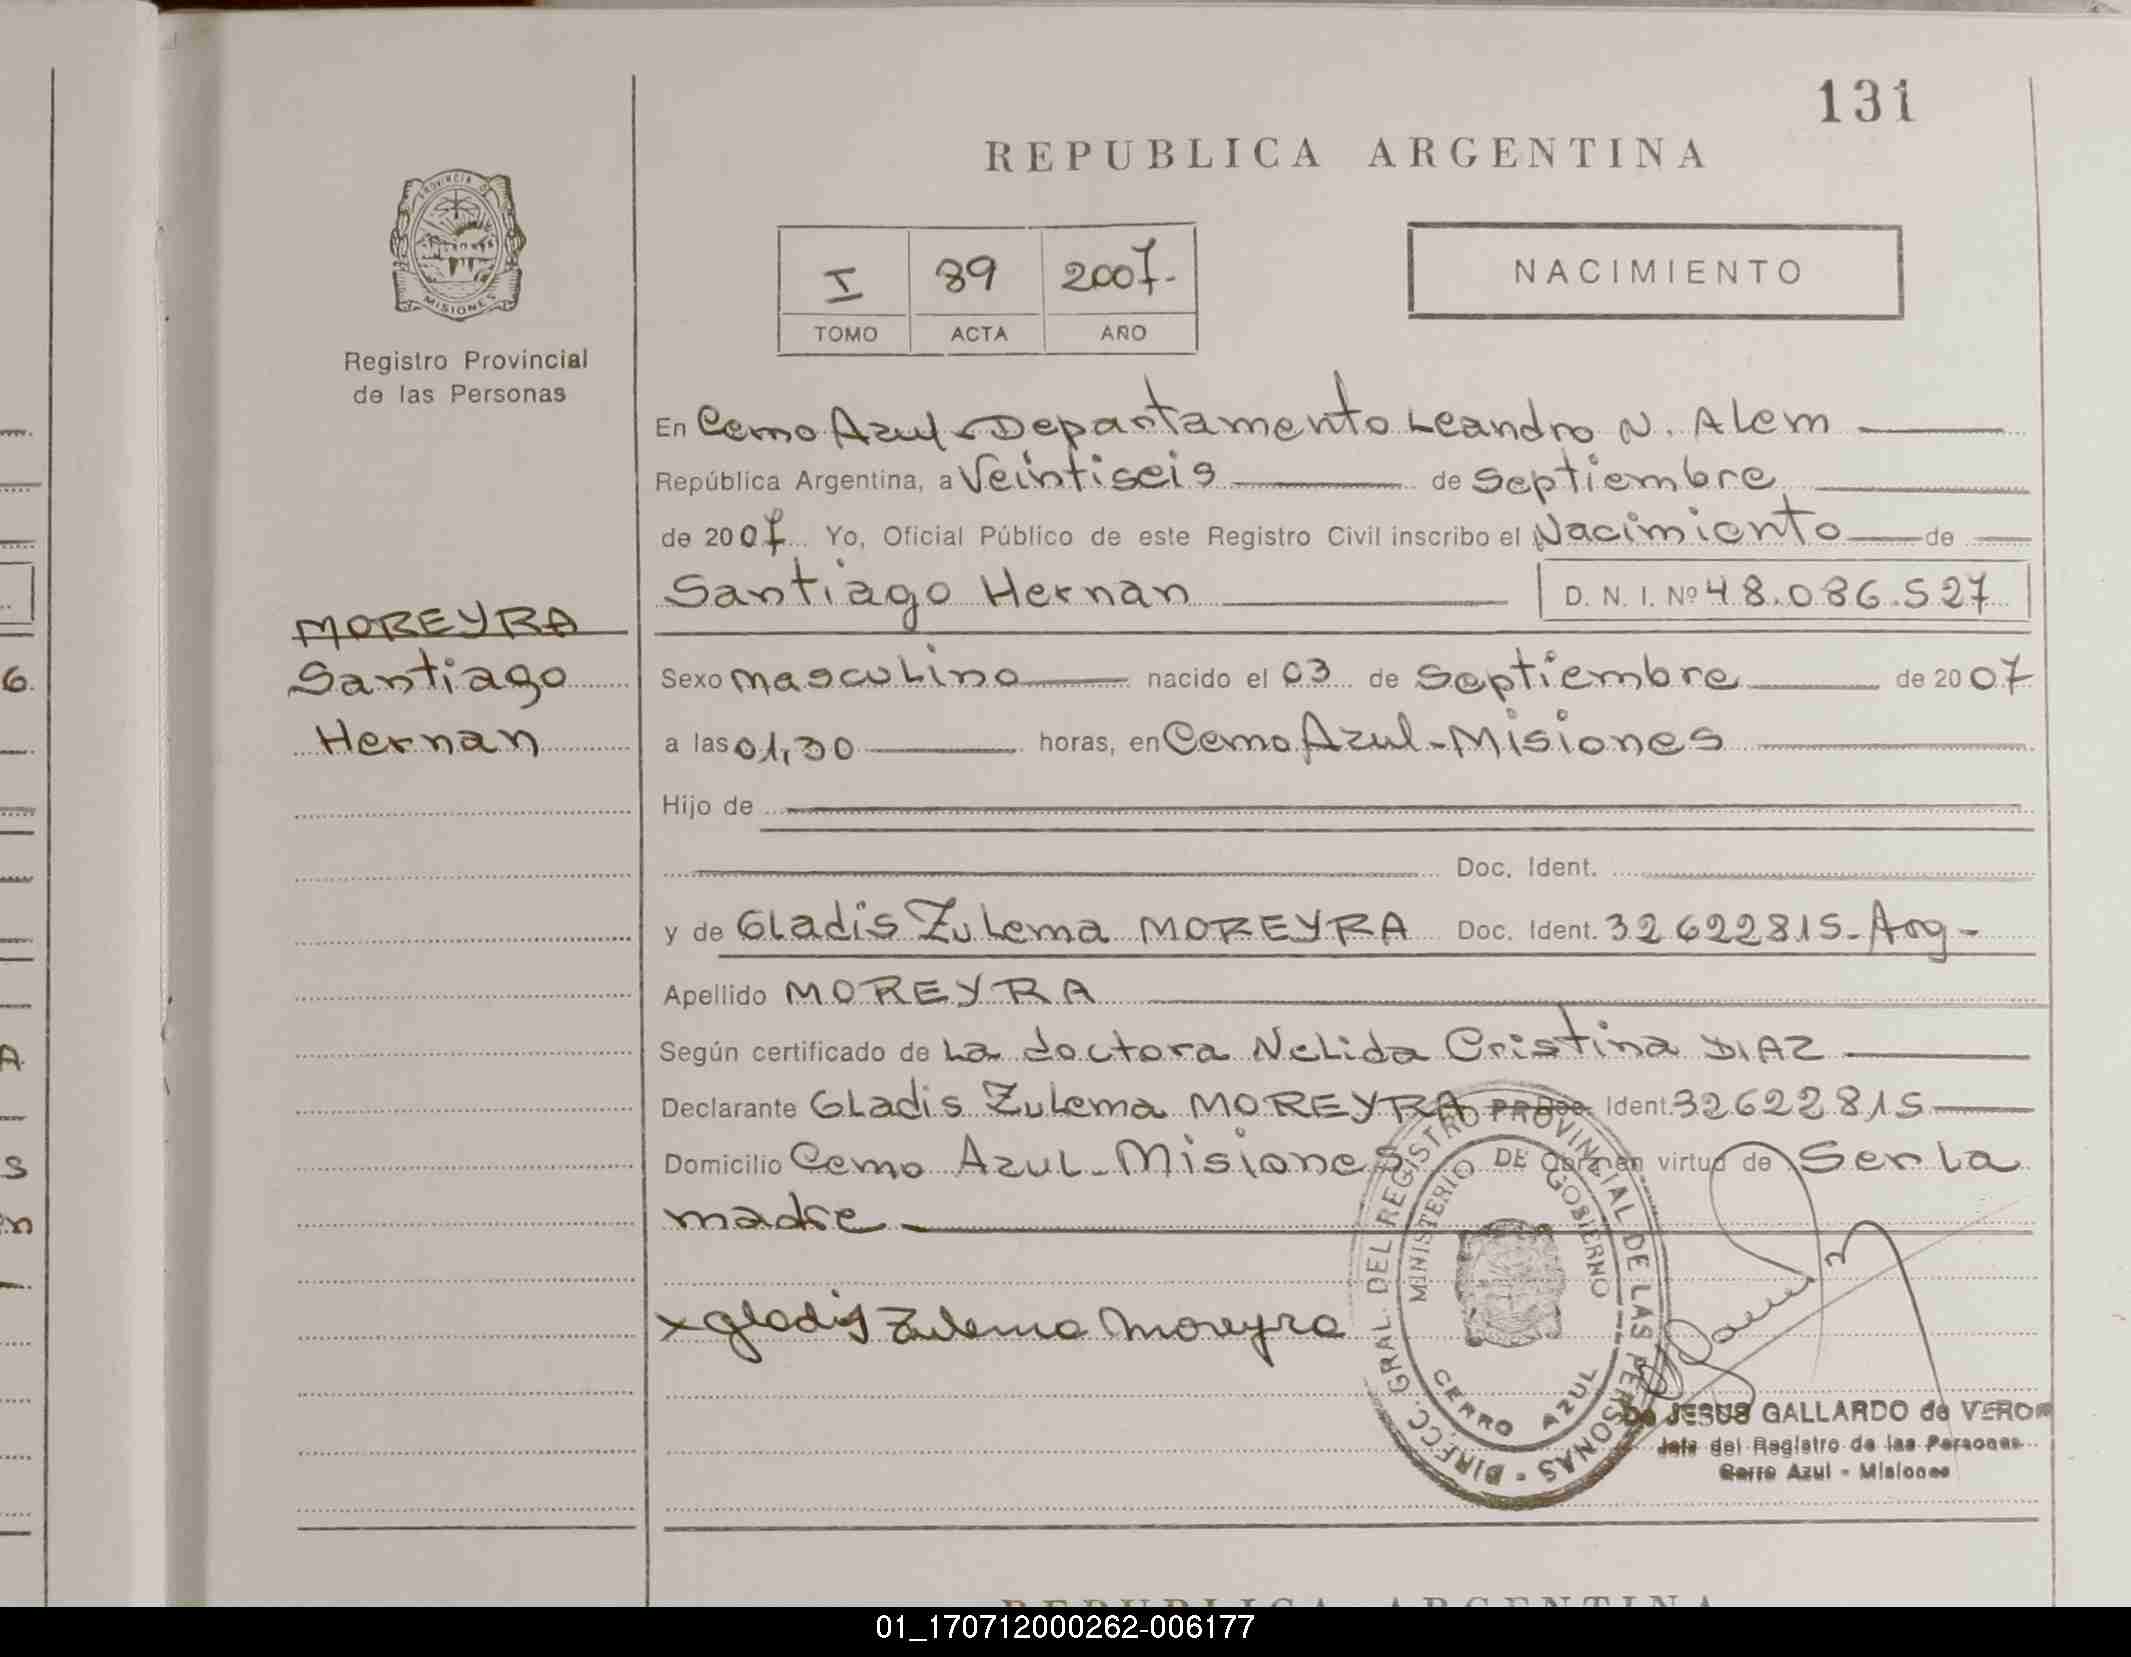 131
REPUBLICA ARGENTINA
PROVINCIA D
MISIONES
Registro Provincial
de las Personas
I 89 2007.-
TOMO ACTA AÑO
NACIMIENTO
En Cerro Azul - Departamento Leandro N. Alem
República Argentina, a Veintiseis de Septiembre
de 2007 Yo, Oficial Público de este Registro Civil inscribo el Nacimiento de
Santiago Hernan D. N. I. Nº 48.086.527
MOREYRA
Santiago
Hernan
Sexo masculino nacido el 03 de Septiembre de 2007
a las 01,30 horas, en Cerro Azul - Misiones
Hijo de
Doc. Ident.
y de Gladis Zulema MOREYRA Doc. Ident. 32622815 - Arg -
Apellido MOREYRA
Según certificado de La doctora Nelida Cristina DIAZ
Declarante Gladis Zulema MOREYRA Doc. Ident. 32622815
Domicilio Cerro Azul - Misiones Obra en virtud de Ser la
madre
x gladis Zulema Moreyra
DIRECC. GRAL. DEL REGISTRO PROVINCIAL DE LAS PERSONAS
MINISTERIO DE GOBIERNO
CERRO AZUL
De JESUS GALLARDO de VERON
Jefe del Registro de las Personas
Cerro Azul - Misiones
REPUBLICA ARGENTINA
6.
A
S
n
01_170712000262-006177